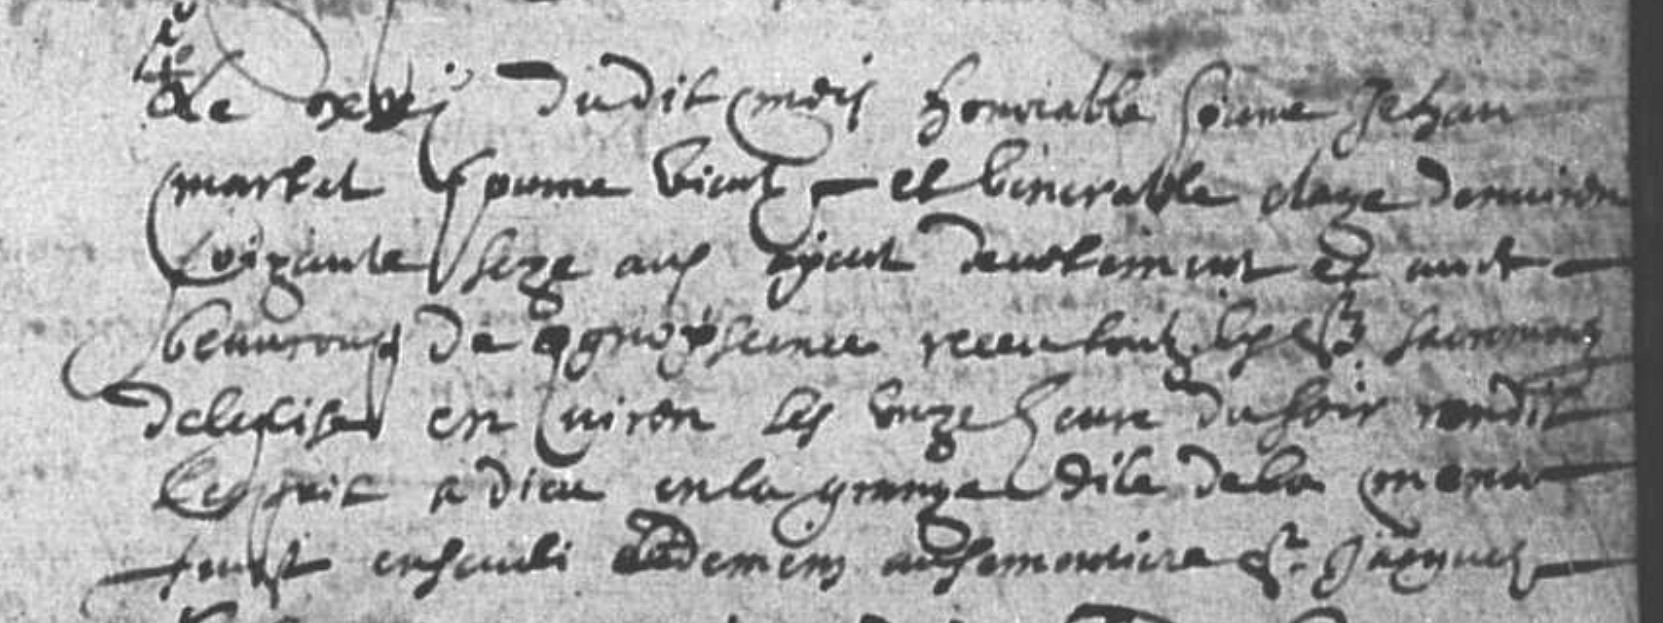 Le xxvi dudit mois honnorable homme Jehan
market homme vieux et venerable eage denuiron
soixante seze ans ayant deuotement et auec
beaucoup de cognoissance receu touts les Sts sacremens
deleglise en uiron les unze heure du soir rendit
lesprit a dieu en la grange dite de la
feust enseueli ausemontiere St Jacques